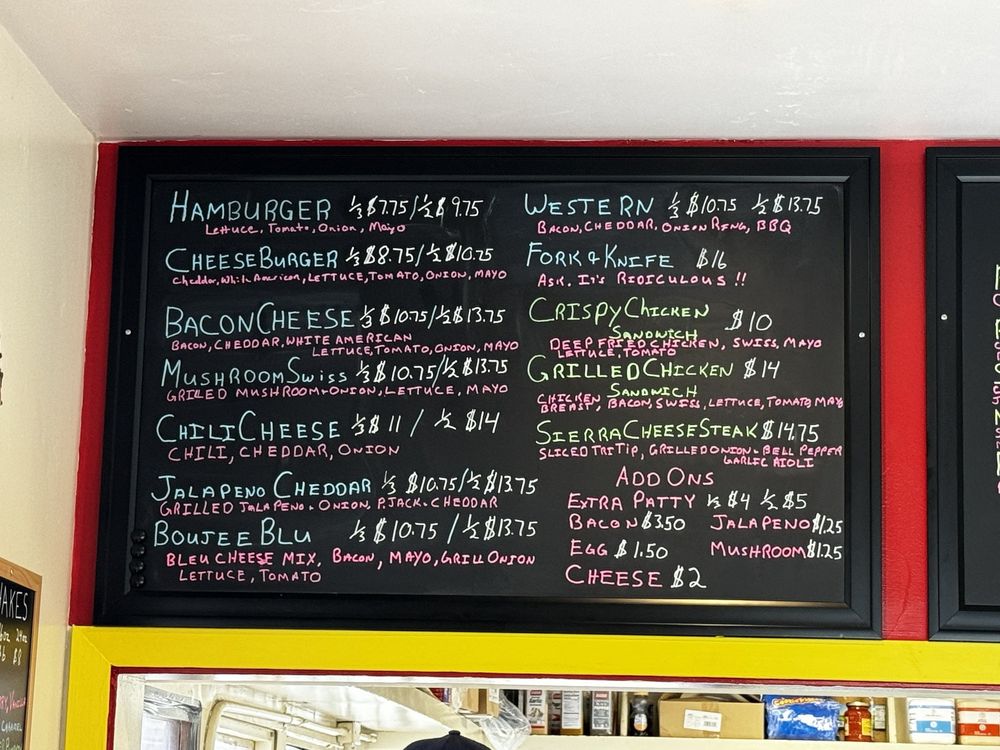 HAMBURGER ⅓ $7.75/½ $9.75
Lettuce, Tomato, Onion, Mayo
CHEESEBURGER ⅓ $8.75/½ $10.75
Cheddar, White American, LETTUCE, TOMATO, ONION, MAYO
BACONCHEESE ⅓ $10.75/½ $13.75
BACON, CHEDDAR, WHITE AMERICAN
LETTUCE, TOMATO, ONION, MAYO
MUSHROOM SWISS ⅓ $10.75/½ $13.75
GRILLED MUSHROOM+ONION, LETTUCE, MAYO
CHILI CHEESE ⅓ $11 / ½ $14
CHILI, CHEDDAR, ONION
JALAPENO CHEDDAR ⅓ $10.75/½ $13.75
GRILLED JALAPENO + ONION, P.JACK + CHEDDAR
BOUJEE BLU ⅓ $10.75 / ½ $13.75
BLEU CHEESE MIX, BACON, MAYO, GRILL ONION
LETTUCE, TOMATO
WESTERN ⅓ $10.75 ½ $13.75
BACON, CHEDDAR, ONION RING, BBQ
FORK & KNIFE $16
ASK. IT'S RIDICULOUS !!
CRISPY CHICKEN $10
SANDWICH
DEEP FRIED CHICKEN, SWISS, MAYO
LETTUCE, TOMATO
GRILLED CHICKEN $14
SANDWICH
CHICKEN
BREAST, BACON, SWISS, LETTUCE, TOMATO, MAYO
SIERRA CHEESESTEAK $14.75
SLICED TRI TIP, GRILLED ONION + BELL PEPPER
GARLIC AIOLI
ADD ONS
EXTRA PATTY ⅓ $4 ½ $5
BACON $3.50 JALAPENO $1.25
EGG $1.50 MUSHROOM $1.25
CHEESE $2
AKES
24oz
$8